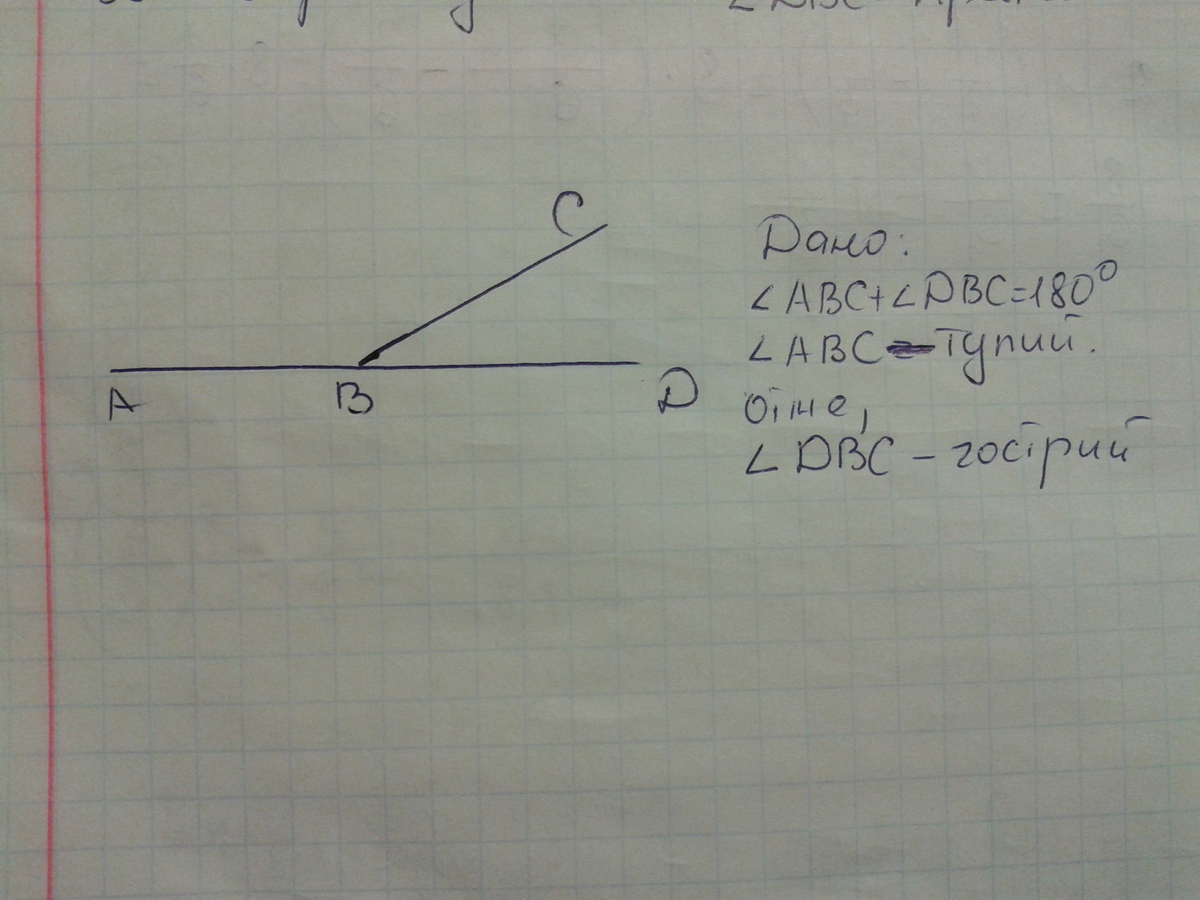 ∠DBC
C
Дано:
∠ABC+∠DBC=180°
∠ABC – тупий.
A B D
отже,
∠DBC – гострий